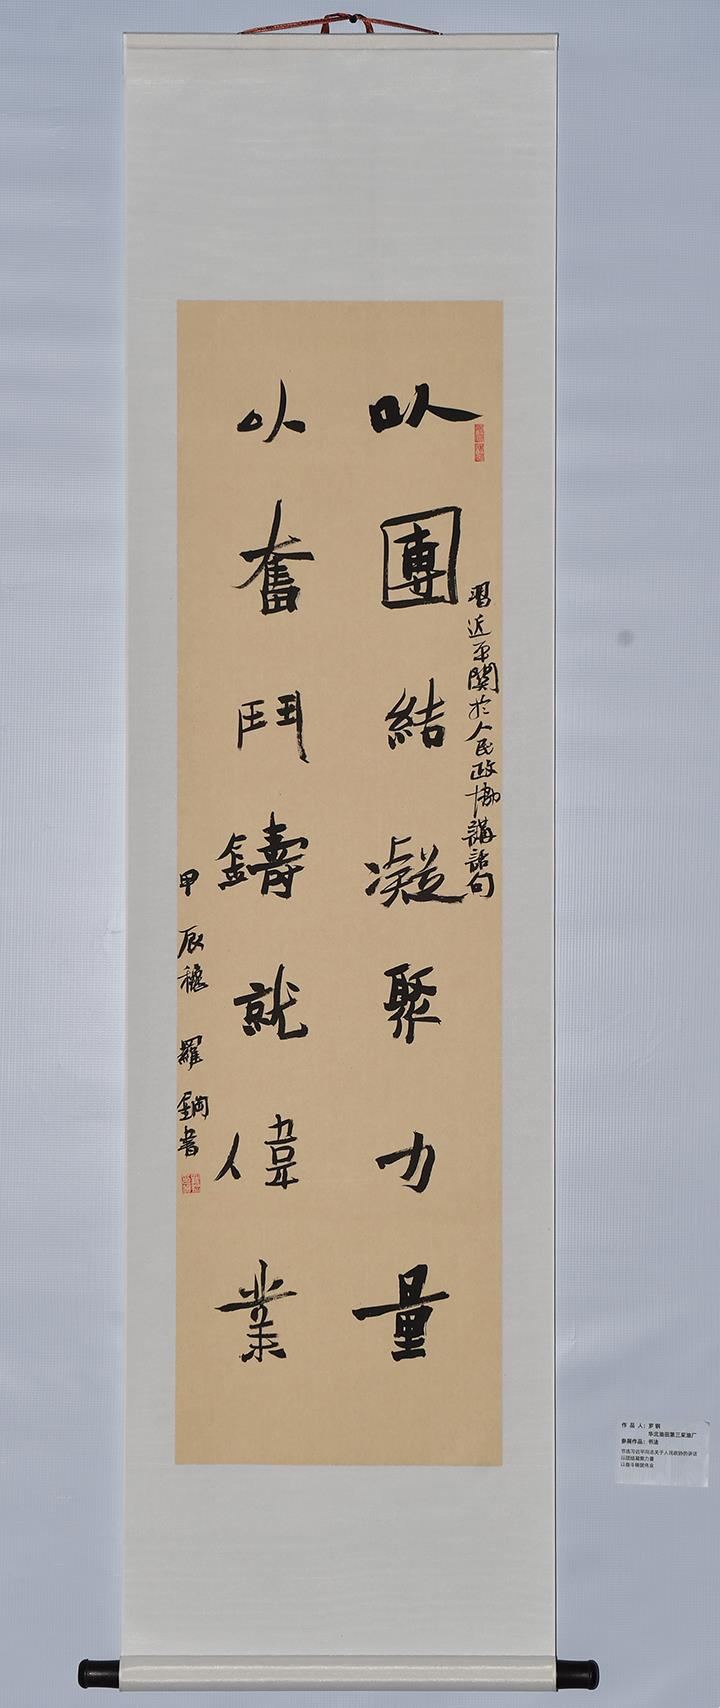 以團結凝聚力量
習近平關於人民政協講話句
以奮鬥鑄就偉業
甲辰穐 羅鋼書
作 品 人：罗 钢
华北油田第三采油厂
参展作品：书法
节选习近平同志关于人民政协的讲话
以团结凝聚力量
以奋斗铸就伟业